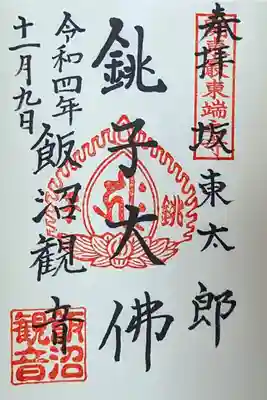 奉拝
坂東太郎
銚子大佛
飯沼観音
令和四年
十一月九日
最東端
銚
飯沼
観音